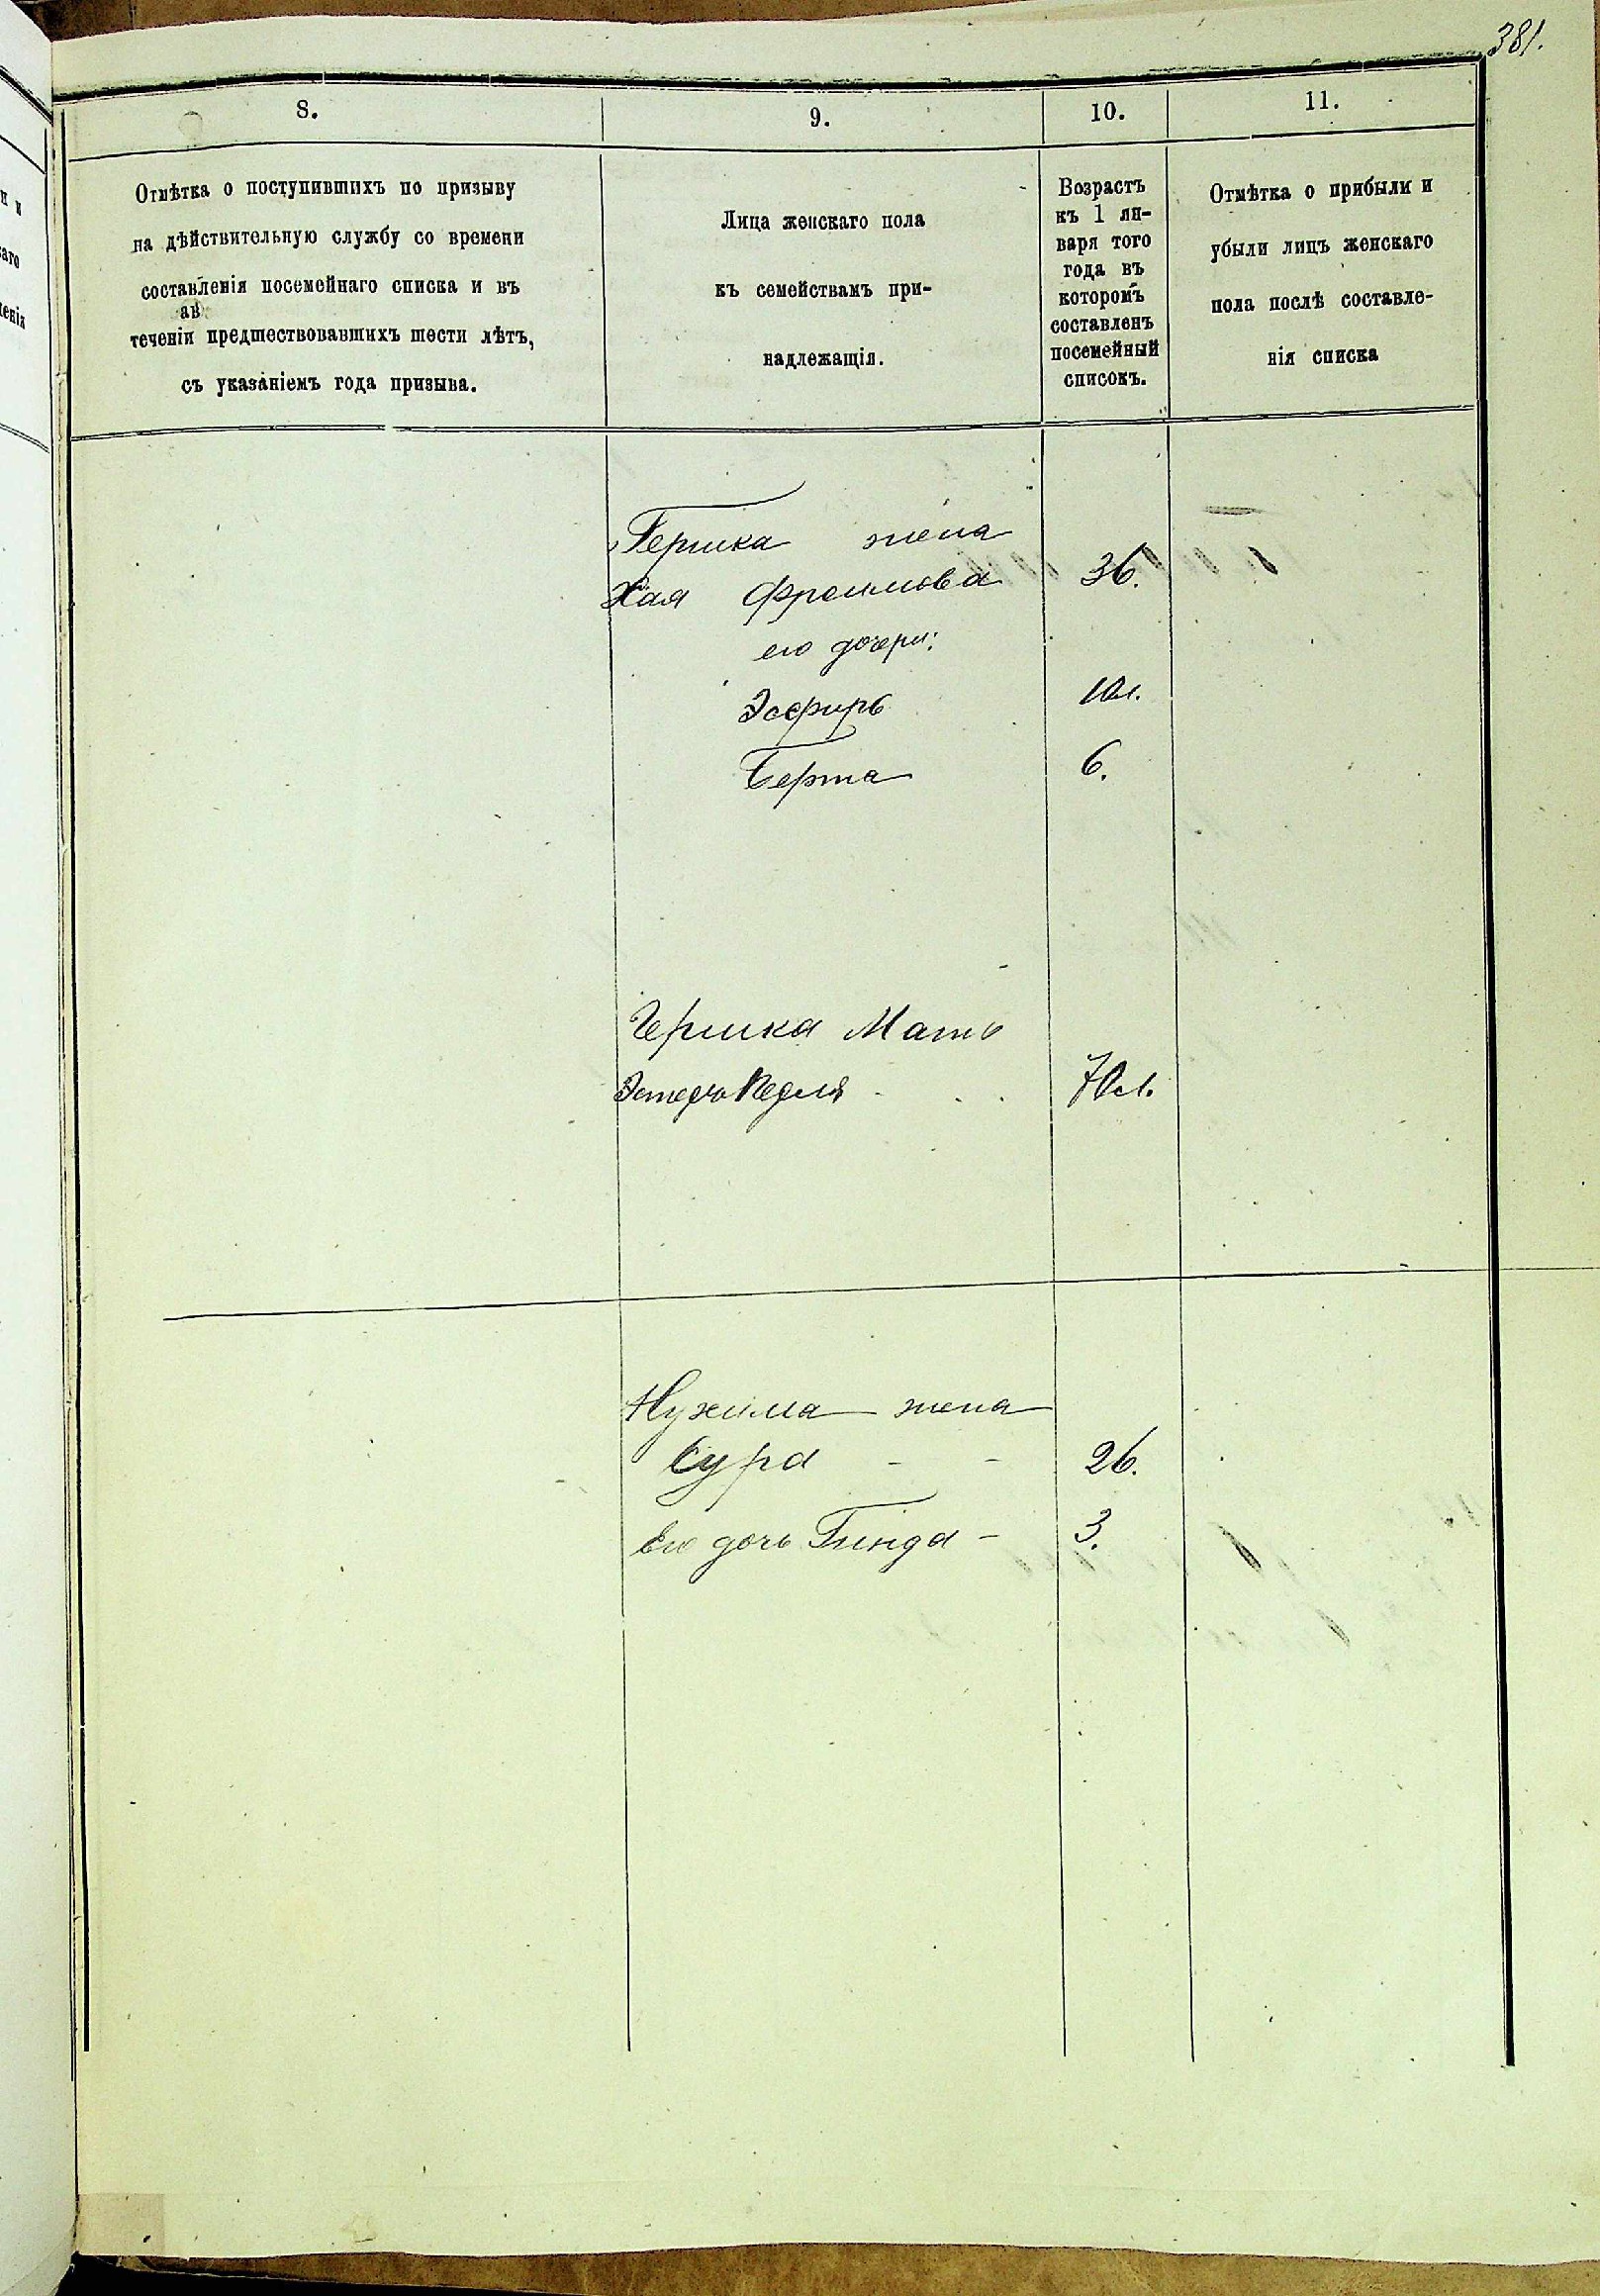 381.
8.
9.
10.
11.
Отмѣтка о поступившихъ по призыву
на дѣйствительную службу со времени
составленія посемейнаго списка и въ
теченіи предшествовавшихъ шести лѣтъ,
съ указаніемъ года призыва.
Лица женскаго пола
къ семействамъ при-
надлежащія.
Возрастъ
къ 1 ян-
варя того
года въ
которомъ
составленъ
посемейный
списокъ.
Отмѣтка о прибыли и
убыли лицъ женскаго
пола послѣ составле-
нія списка
Гершка жена
Хая Фроимова 36.
его дочери:
Эсфирь 10 л.
Берта 6.
Гершка Мать
Эстеръ 70 л.
Нухима жена
Сура - - 26.
Его дочь Гинда - 3.